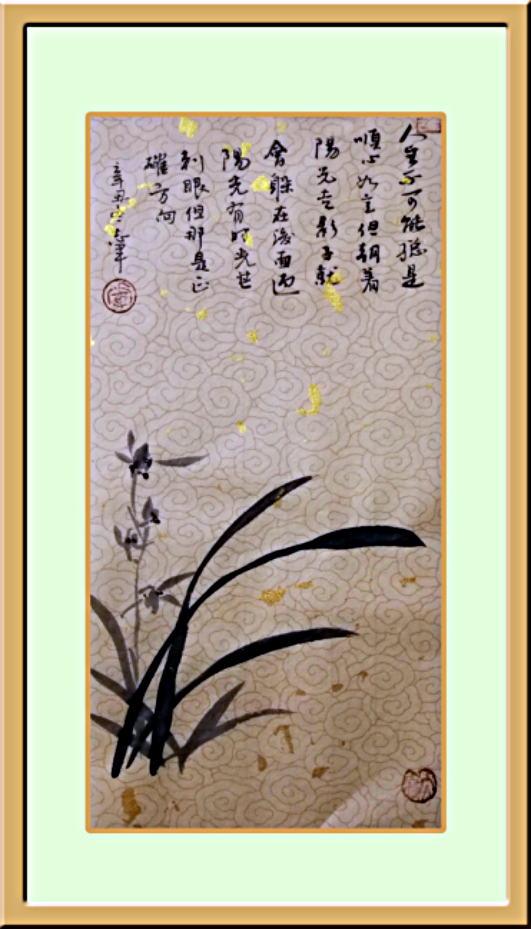 人生不可能總是
順心如意但朝着
陽光走影子就
會躲在後面而
陽光有時光芒
刺眼但那是正
確方向
辛丑